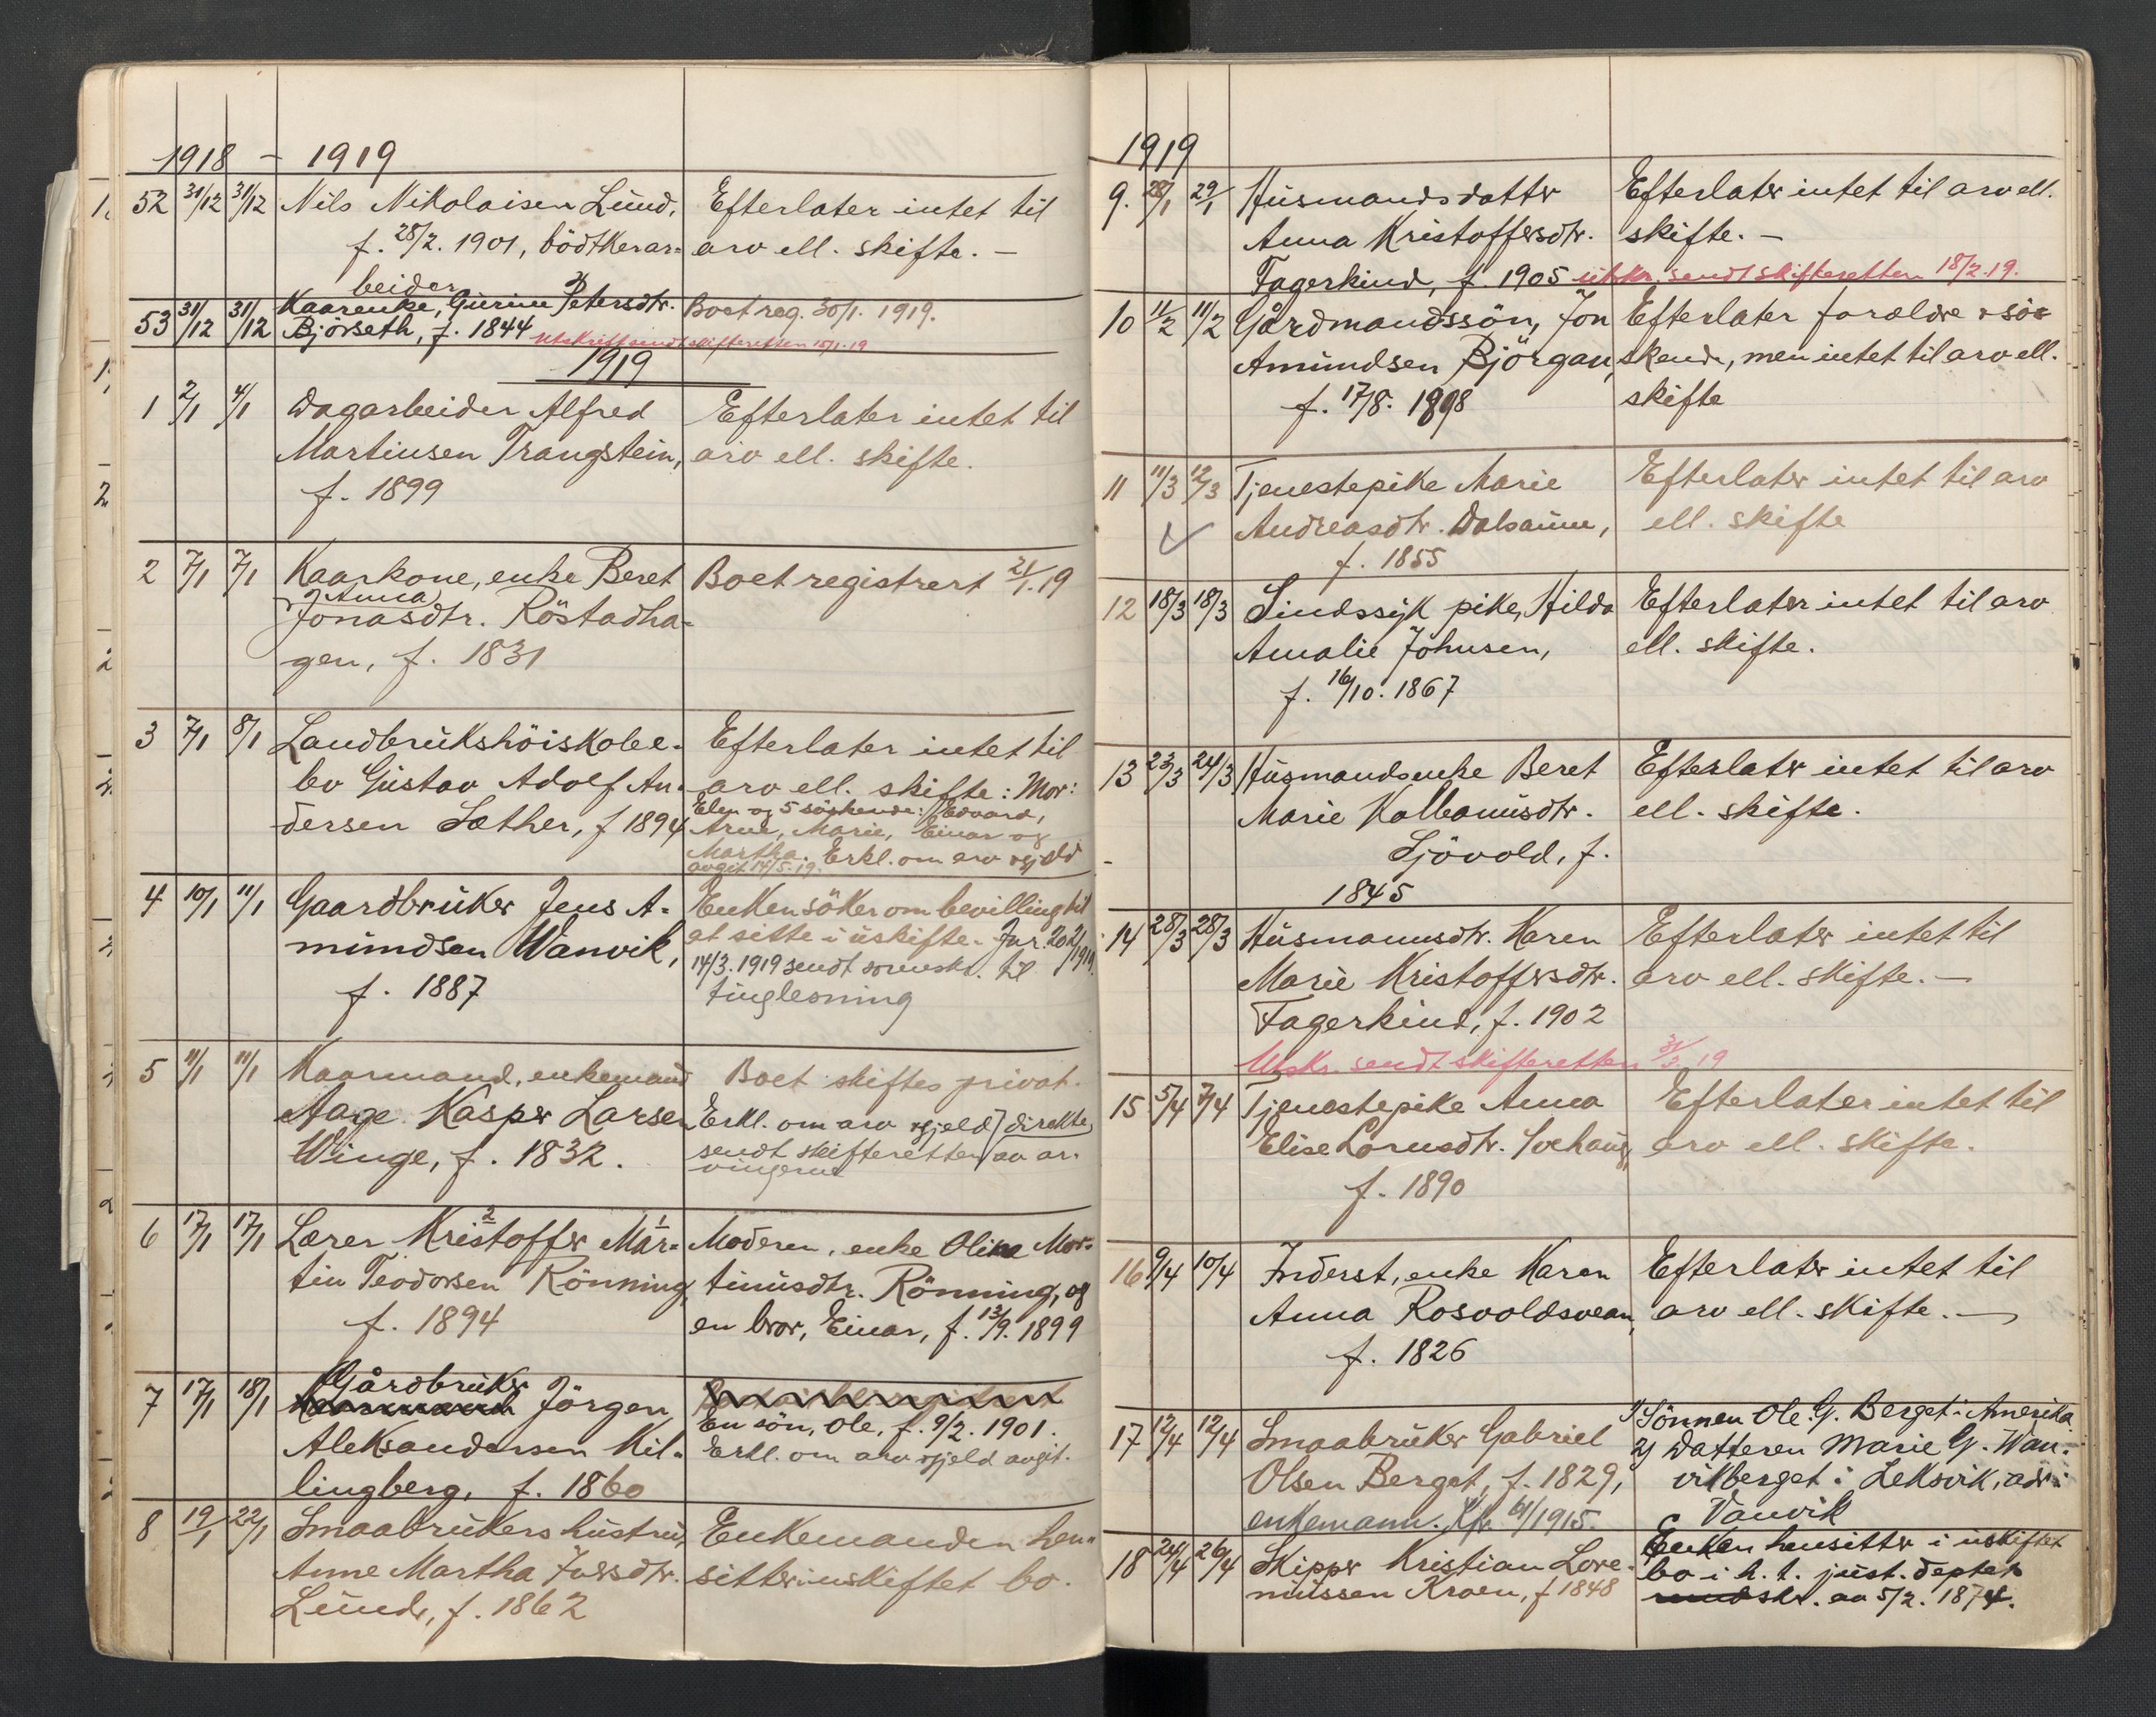 1918 - 1919
52 31/12 31/12 Nils Nikolaisen Lund, Efterlater intet til
f. 28/2. 1901, bödtkerar= arv ell. skifte. -
beider
53 31/12 31/12 Kaarenke, Gurine Petersdtr. Boet reg. 30/1. 1919.
Björseth, f. 1844 Utskrift sendt skifteretten 15/1-19
1919
1 2/1 4/1 Dagarbeider Alfred Efterlater intet til
Martinsen Trangstein, arv ell. skifte.
f. 1899
2 7/1 7/1 Kaarkone, enke Beret Boet registrert 21/1.19
Anna
Jonasdtr. Röstadha-
gen, f. 1831
3 7/1 8/1 Landbrukshöiskolee- Efterlater intet til
lev Gustav Adolf An- arv ell. skifte: Mor:
dersen Sæther, f 1894 Elen og 5 söskende: Edvard,
Arne, Marie, Einar og
Martha. Erkl. om arv og gjeld
avgit 14/5-19.
4 10/1 11/1 Gaardbruker Jens A- Enken söker om bevilling til
mundsen Wanvik, at sitte i uskifte. Jnr. 202/1919.
f. 1887 14/3. 1919 sendt sorenskr. til
tinglesning
5 11/1 11/1 Kaarmand, enkemand Boet skiftes privat.
Aage Kasper Larsen Erkl. om arv og gjeld direkte
Winge, f. 1832. sendt skifteretten av ar-
vingerne
6 17/1 17/1 Lærer Kristoffer Mar- Moderen, enke Oline Mor-
2 1
tin Teodorsen Rönning, tinusdtr. Rönning, og
f. 1894 en bror, Einar, f. 13/9. 1899
Gårdbruker
7 17/1 18/1 Jörgen
Aleksandersen Kil- En sön, Ole, f. 9/2. 1901.
lingberg, f. 1860 Erkl. om arv og gjeld avgit.
8 19/1 22/1 Smaabrukers hustru, Enkemanden hen-
Anne Martha Iversdtr. sitter i uskiftet bo.
Lund, f. 1862
1919
9. 28/1 29/1 Husmandsdatter Efterlater intet til arv ell.
Anna Kristoffersdtr. skifte. -
Fagerkind, f. 1905 utskr. sendt skifteretten 18/2.19.
10 11/2 11/2 Gårdmandssön, Jon Efterlater forældre & sös-
Amundsen Björgan, kende, men intet til arv ell.
f. 17/8. 1898 skifte
11 11/3 12/3 Tjenestepike Marie Efterlater intet til arv
Andreasdtr. Dalsaune, ell. skifte
f. 1855
12 18/3 18/3 Sindssyk pike, Hilda Efterlater intet til arv
Amalie Johnsen, ell. skifte.
f. 16/10. 1867
13 23/3 24/3 Husmandsenke Beret Efterlater intet til arv
Marie Kolbanusdtr. ell. skifte.
Sjövold, f.
1845
14 28/3 28/3 Husmannsdtr. Karen Efterlater intet til
Marie Kristoffersdtr. arv ell. skifte. -
Fagerkind, f. 1902
Utskr. sendt skifteretten 31/3. 19
15 5/4 7/4 Tjenestepike Anna Efterlater intet til
Elise Lornsdtr. arv ell. skifte.
f. 1890
16 9/4 10/4 Inderst, enke Karen Efterlater intet til
Anna Rosvoldsvean, arv ell. skifte. -
f. 1826
17 12/4 12/4 Smaabruker Gabriel 1) Sönnen Ole G. Berget i Amerika
Olsen Berget, f. 1829, 2) Datteren Marie G. Wan-
enkemann. Kfr. 61/1915. vikberget i Leksvik, adr:
Vanvik
18 24/4 26/4 Skipper Kristian Lore- Enken hensitter i uskiftet
nussen Kroen, f 1848 bo i h. t. just. deptets
rundskr. av 5/2. 1874.